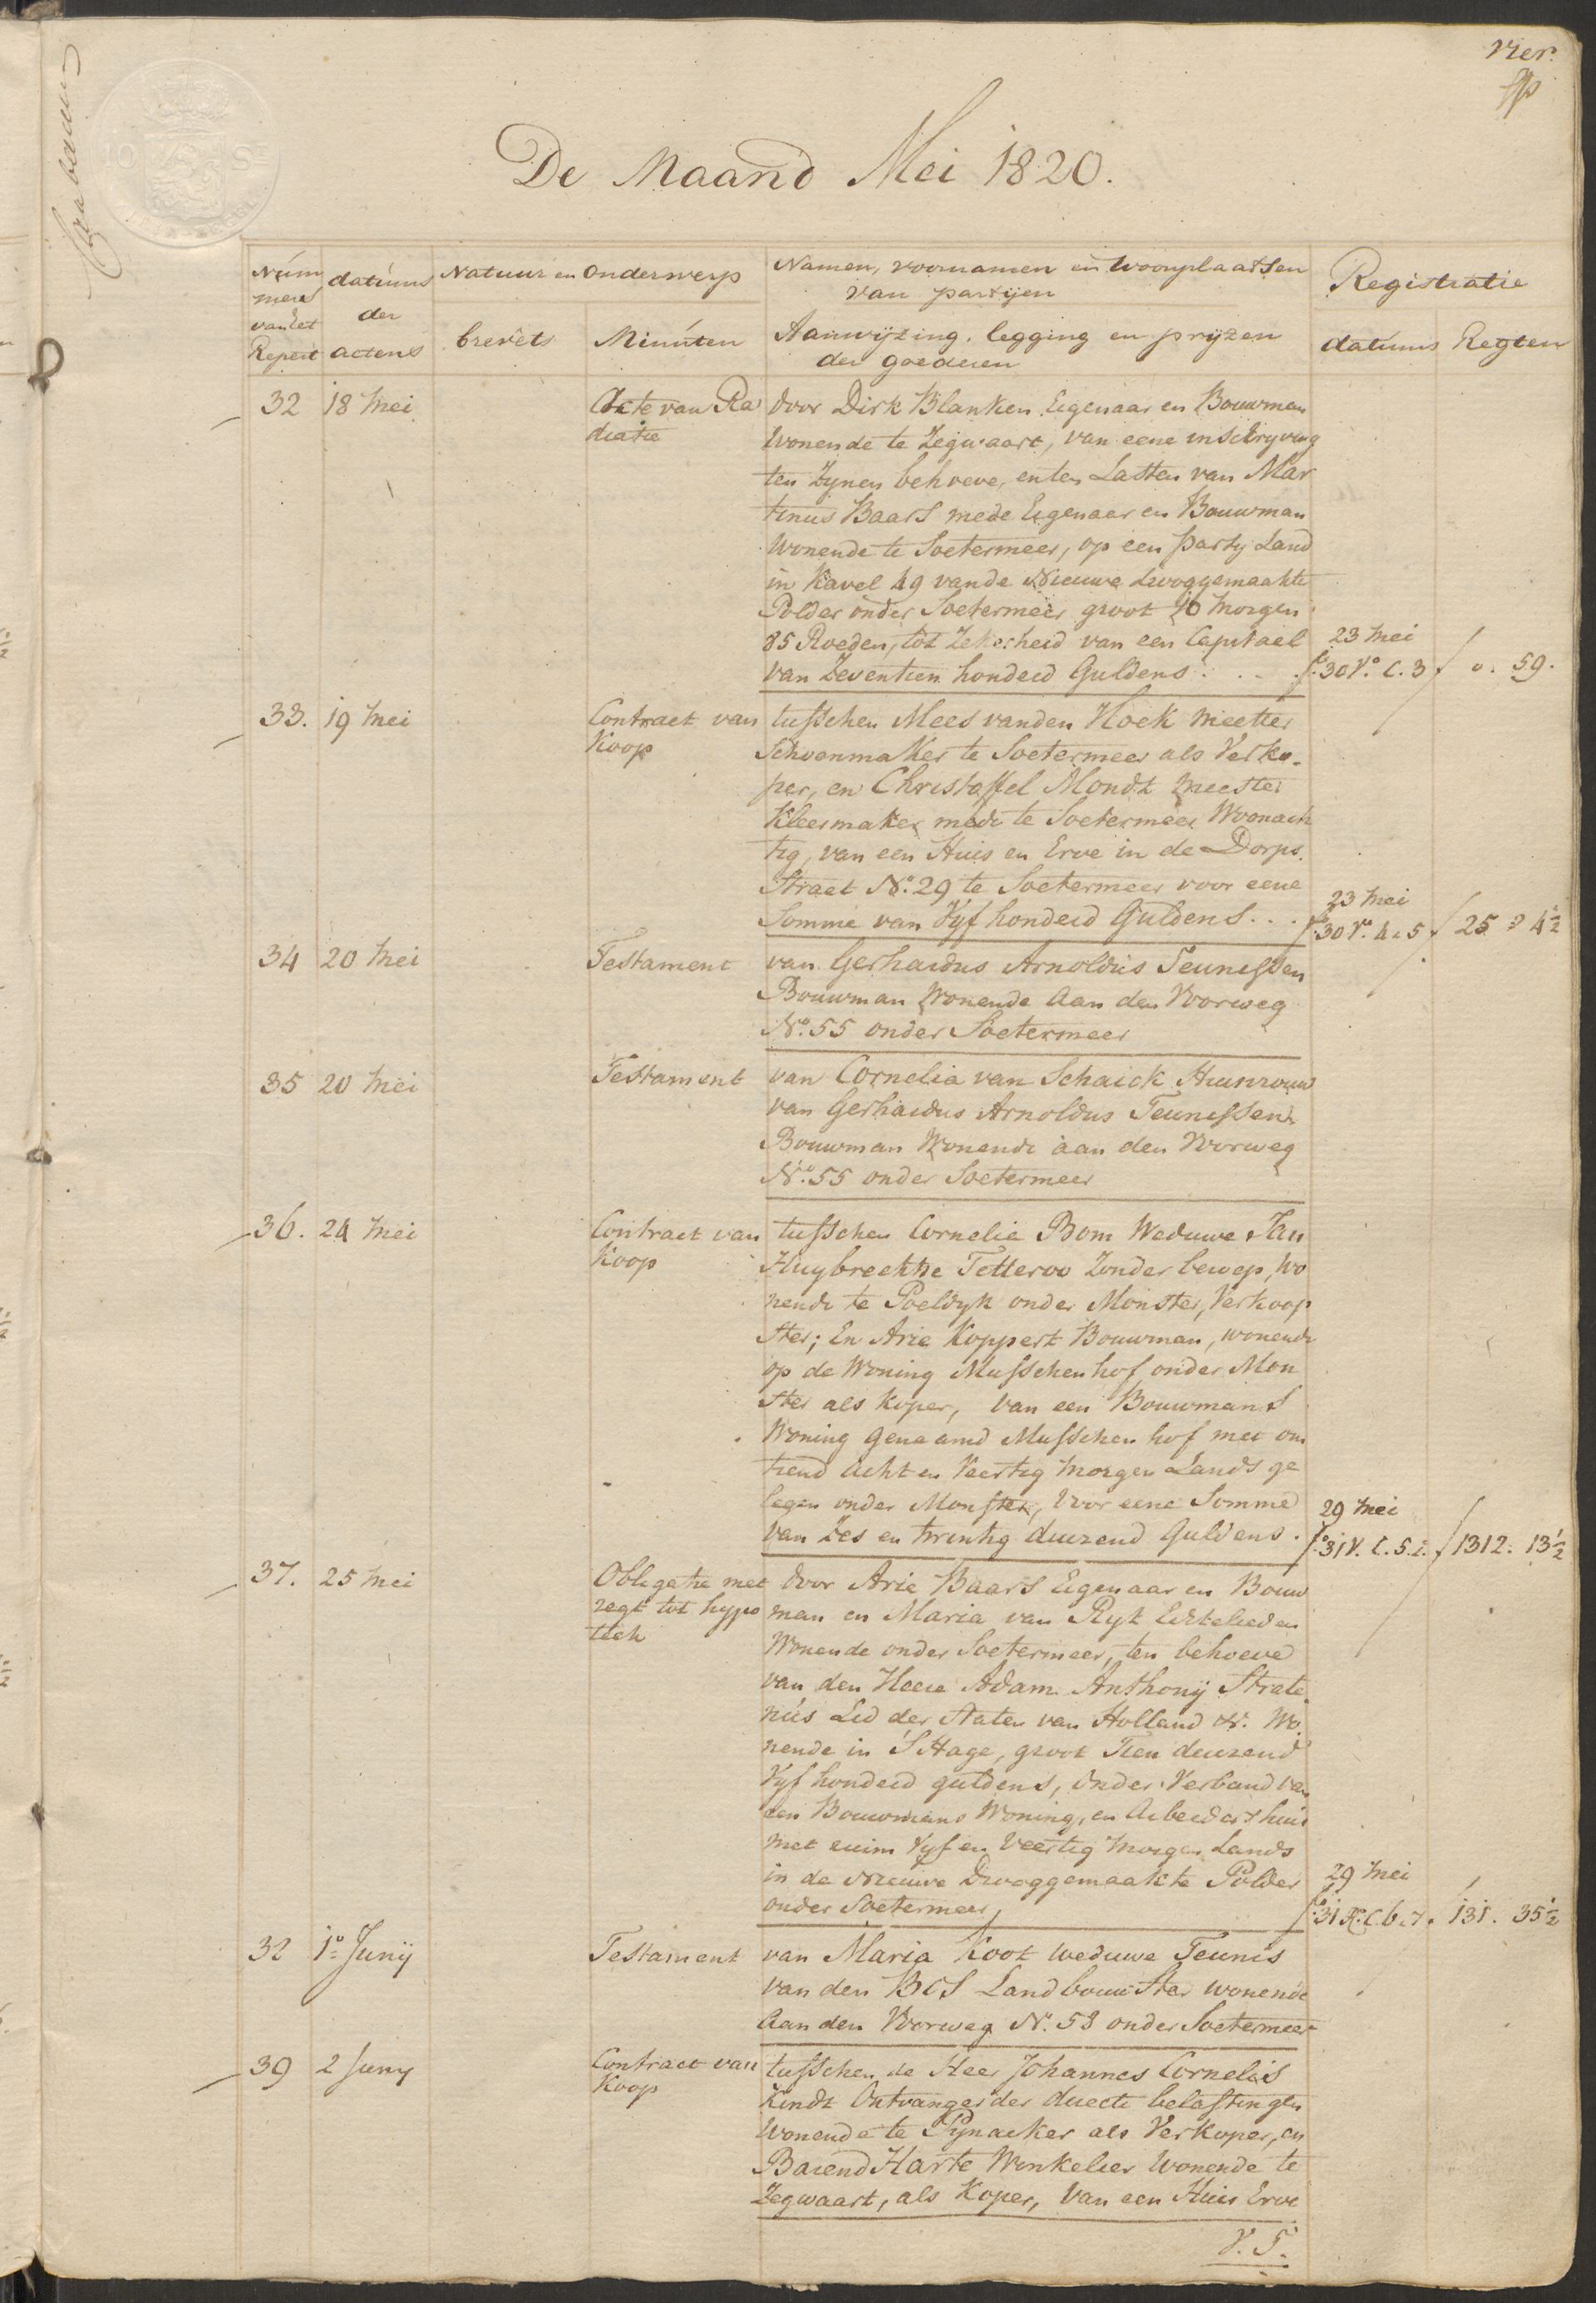 vier
De Maand Mei 1820.
Num
mers
van het
Repert
datums
der
actens
Natuur en Onderwerp
brevets
Minuten
Namen, voornamen en Woonplaatsen
van partijen
Aanwijzing, legging en prijzen
der goederen
Registratie
datums
Regten
32 18 Mei
Acte van Ra
diatie
door Dirk Blanken Eigenaar en Bouwman
Wonende te Zegwaart, van eene inschryving
ten Zynen behoeve, en ten Lasten van Mar
tinus Baars mede Eigenaar en Bouwman
Wonende te Soetermeer, op een party Land
in Kavel 49 vande Nieuwe drooggemaakte
Polder onder Soetermeer groot 20 Morgen
85 Roeden, tot Zekerheid van een Capitael
van Zeventien honderd Guldens . . .
23 Mei
fo. 30 Vo. C. 3
f 0. 59.
33. 19 Mei
Contract van
Koop
tusschen Mees vanden Hoek Meester
Schoenmaker te Soetermeer als Verko-
per, en Christoffel Mondt Meester
Kleermaker mede te Soetermeer Woonach
tig, van een Huis en Erve in de Dorps
Straet No. 29 te Soetermeer voor eene
Somme van Vyf honderd Guldens . . .
23 Mei
fo. 30 V. 4 . 5
f 25 . 4½
34 20 Mei
Testament
van Gerhardus Arnoldus Teunissen
Bouwman Wonende Aan den Voorweg
No. 55 onder Soetermeer
35 20 Mei
Testament
van Cornelia van Schaick Huisvrouw
van Gerhardus Arnoldus Teunissen
Bouwman Wonende aan den Voorweg
No. 55 onder Soetermeer
36. 24 Mei
Contract van
Koop
tusschen Cornelia Bom Weduwe Jan
Huybrechtse Tetteroo Zonder beroep, Wo
nende te Poeldyk onder Monster, Verkoop
ster; En Arie Koppert Bouwman, wonende
op de Woning Musschenhof onder Mon
ster als Koper, van een Bouwmans
Woning genaamd Musschenhof met om
trend Acht en Veertig Morgen Lands ge
legen onder Monster, Voor eene Somme
van Zes en twintig duizend Guldens.
29 Mei
fo. 31 V. C. 5.
f 1312. 13½
37. 25 Mei
Obligatie met
regt tot hypo
theek
door Arie Baars Eigenaar en Bouw
man en Maria van Ryt Echtelieden
Wonende onder Soetermeer, ten behoeve
van den Heere Adam Anthony Strate
nus Lid der Staten van Holland &. Wo
nende in S Hage, groot Tien duizend
Vyf honderd guldens, onder Verband van
een Bouwmans Woning, en Arbeiders huis
met ruim Vyf en Veertig Morgen Lands
in de Nieuwe Drooggemaakte Polder
onder Soetermeer,
29 Mei
fo. 31 Ro. C. 6 . 7.
131. 35½
38 1o Junij
Testament
van Maria Koot weduwe Teunis
van den BOS Landbouwster wonende
Aan den Voorweg No. 53 onder Soetermeer
39 2 Juny
Contract van
Koop
tusschen de Heer Johannes Cornelis
Kindt Ontvanger der directe belastingen
Wonende te Pynacker als Verkoper, en
Barend Harte Winkelier Wonende te
Zegwaart, als Koper, van een Huis Erve
V. T.